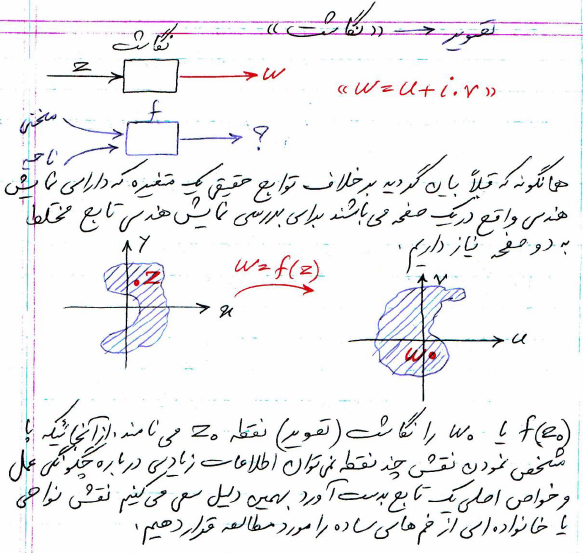 تصویر → «نگاشت»
نگاشت
z
w
«w = u + i.v»
منحنی
f
ناحیه
?
همانگونه که قبلاً بیان گردید برخلاف توابع حقیقی یک متغیره که دارای نمایش
هندسی واقع در یک صفحه می باشند برای بررسی نمایش هندسی تابع مختلط
به دو صفحه نیاز داریم.
y
.z
w=f(z)
x
v
u
w.
f(z₀) یا w₀ را نگاشت (تصویر) نقطه z₀ می نامند. از آنجائیکه با
مشخص نمودن نقش چند نقطه نمی توان اطلاعات زیادی درباره چگونگی عمل
و خواص اصلی یک تابع بدست آورد بهمین دلیل سعی می کنیم نقش نواحی
یا خانواده ای از خم های ساده را مورد مطالعه قرار دهیم.